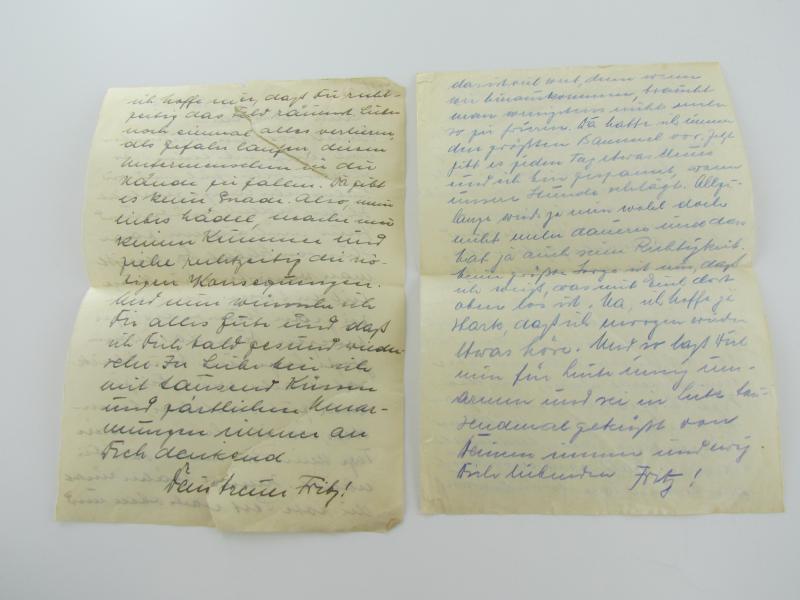 ich hoffe nur, daß Du recht-
zeitig das Feld räumst. Lieber
noch einmal alles verlieren,
als Gefahr laufen, diesen
Untermenschen in die
Hände zu fallen. Da gibt
es kein Gnade. Also, mein
liebes Mädel, mache mir
keinen Kummer und
ziehe rechtzeitig die nö-
tigen Konsequenzen.
Und nun wünsche ich
Dir alles Gute und daß
ich Dich bald gesund wieder-
sehe. In Liebe bin ich
mit tausend Küssen
und zärtlichen Umar-
mungen immer an
Dich denkend
Dein treuer Fritz!
das ist viel wert, denn wenn
wir hinauskommen, braucht
man wenigstens nicht mehr
so zu frieren. Da hatte ich immer
den größten Bammel vor. Jetzt
gibt es jeden Tag etwas Neues
und ich bin gespannt, wann
unsere Stunde schlägt. Allzu-
lange wird ja nun wohl doch
nicht mehr dauern und das
hat ja auch seine Richtigkeit.
Meine größte Sorge ist nur, daß
ich weiß, was mit Euch dort
oben los ist. Na, ich hoffe ja
stark, daß ich morgen wieder
etwas höre. Und so laß Dich
nun für heute innig um-
armen und sei in Liebe tau-
sendmal geküßt von
Deinem immer und ewig
Dich liebenden Fritz!